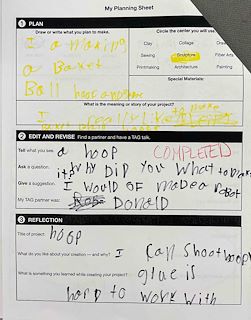 My Planning Sheet
1 PLAN
Draw or write what you plan to make.
Circle the center you will use
I a making
a Basket
Ball hoop
Clay Collage
Sewing Sculpture Fiber Arts
Printmaking Architecture Painting
Special Materials:
What is the meaning or story of your project?
I really like to
2 EDIT AND REVISE Find a partner and have a TAG talk.
Tell what you see. a hoop COMPLETED
Ask a question. Why DiD you what to make it
Give a suggestion. I would of made a
My TAG partner was: Donald
3 REFLECTION
Title of project: hoop
What do you like about your creation — and why? I can shoot hoops
What is something you learned while creating your project? glue is
hard to work with